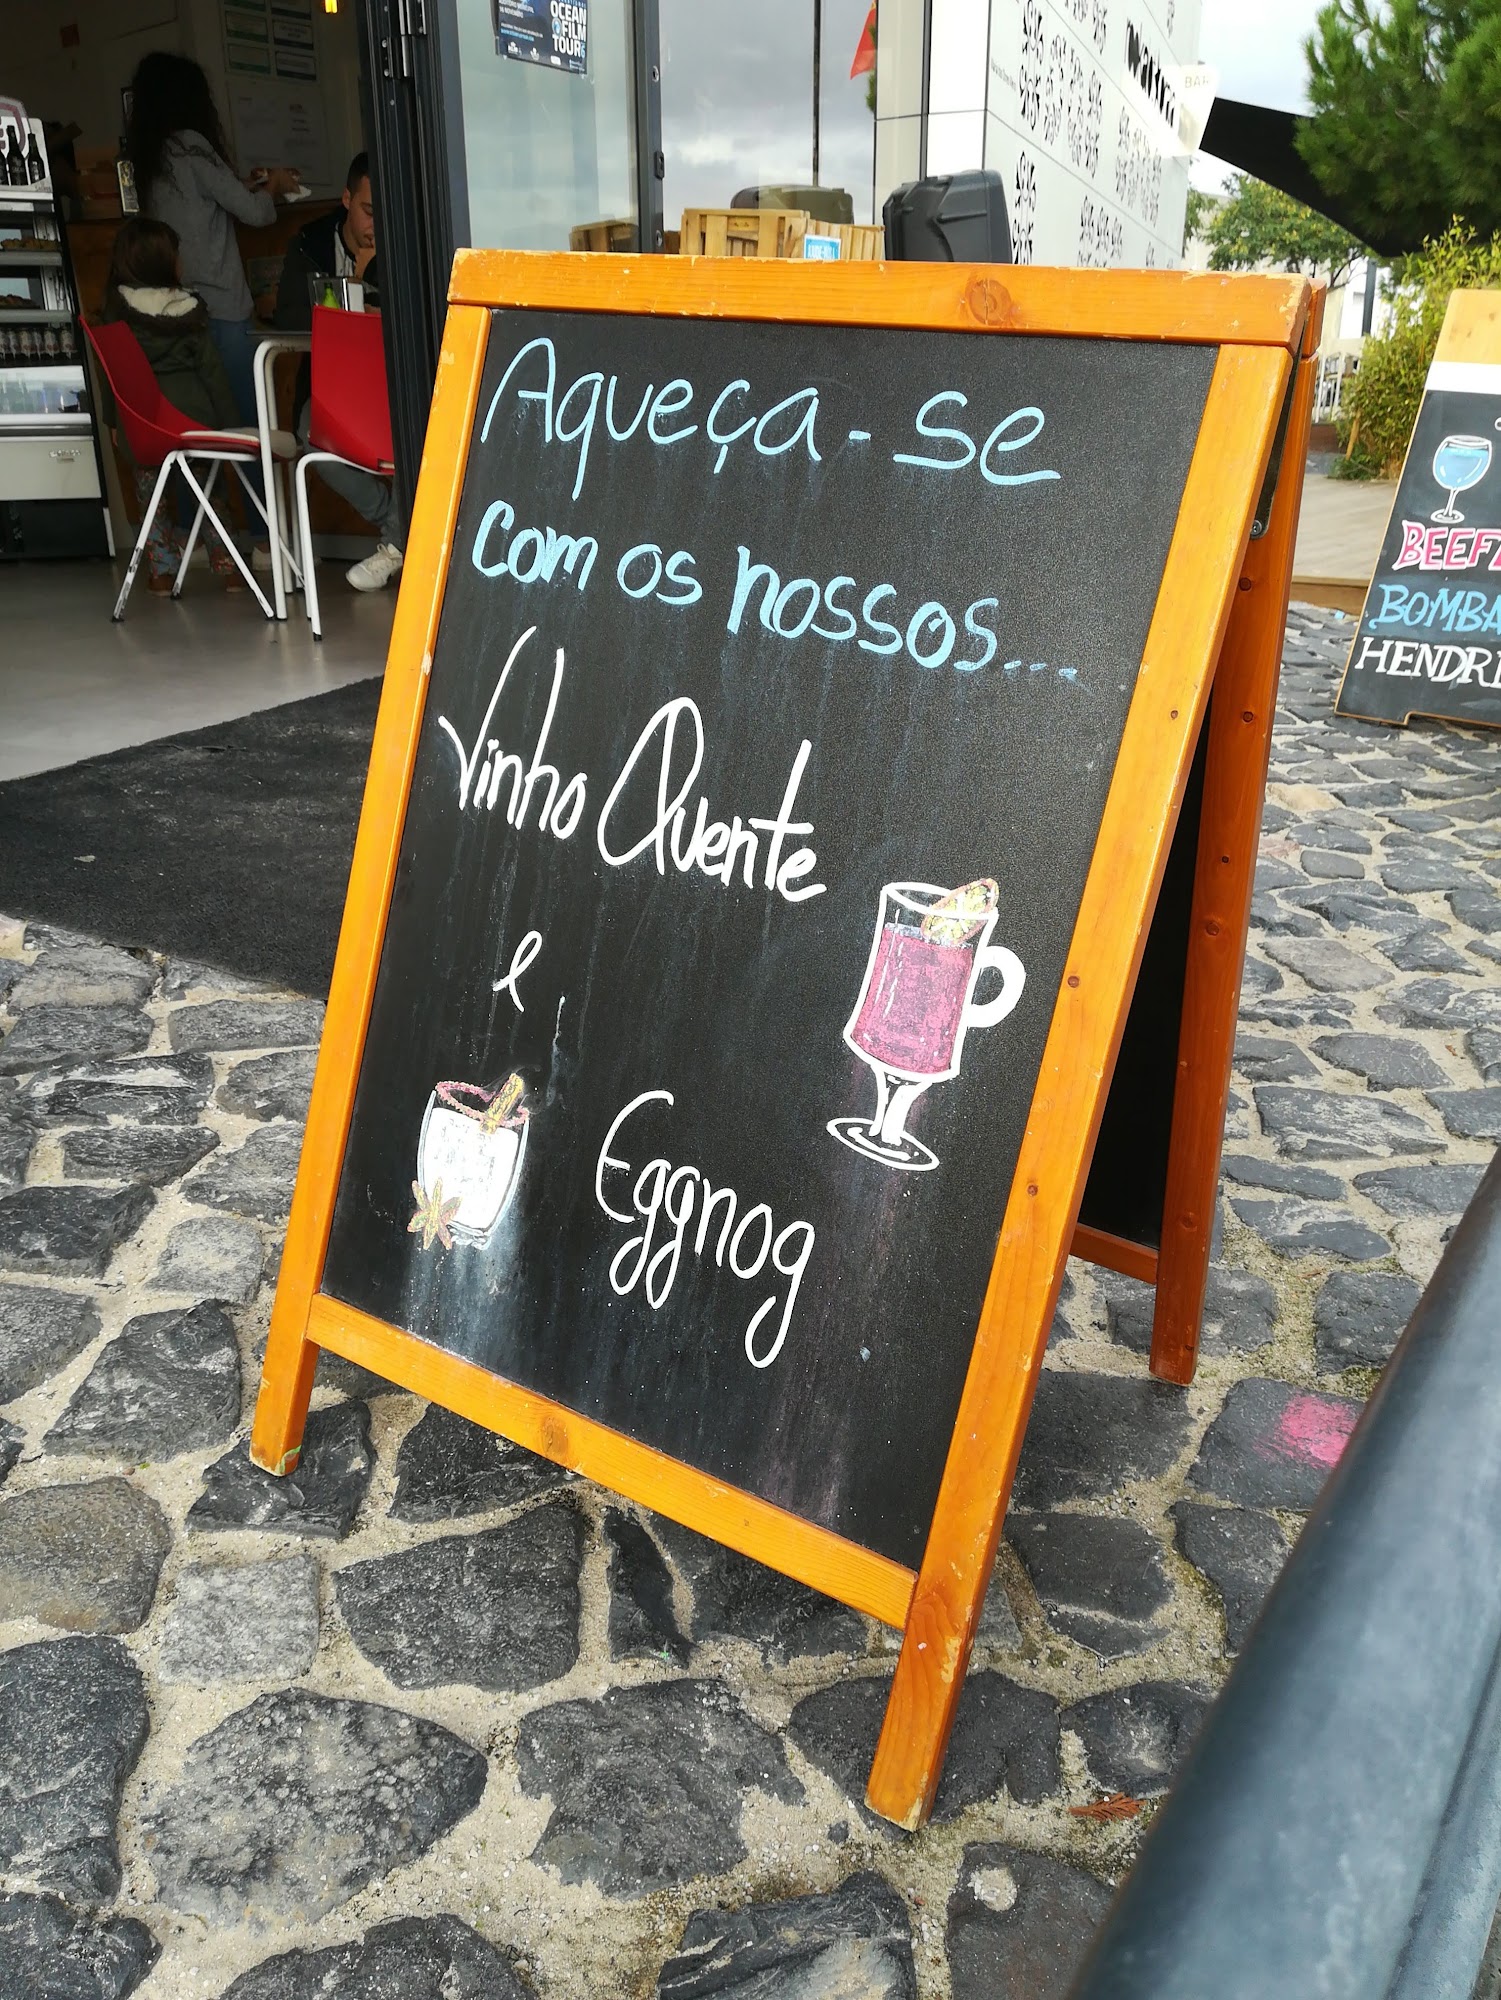 OCEAN
FILM
TOUR
BAR
Aqueça-se
com os nossos...
Vinho Quente
e
Eggnog
BOMBA
HENDRE